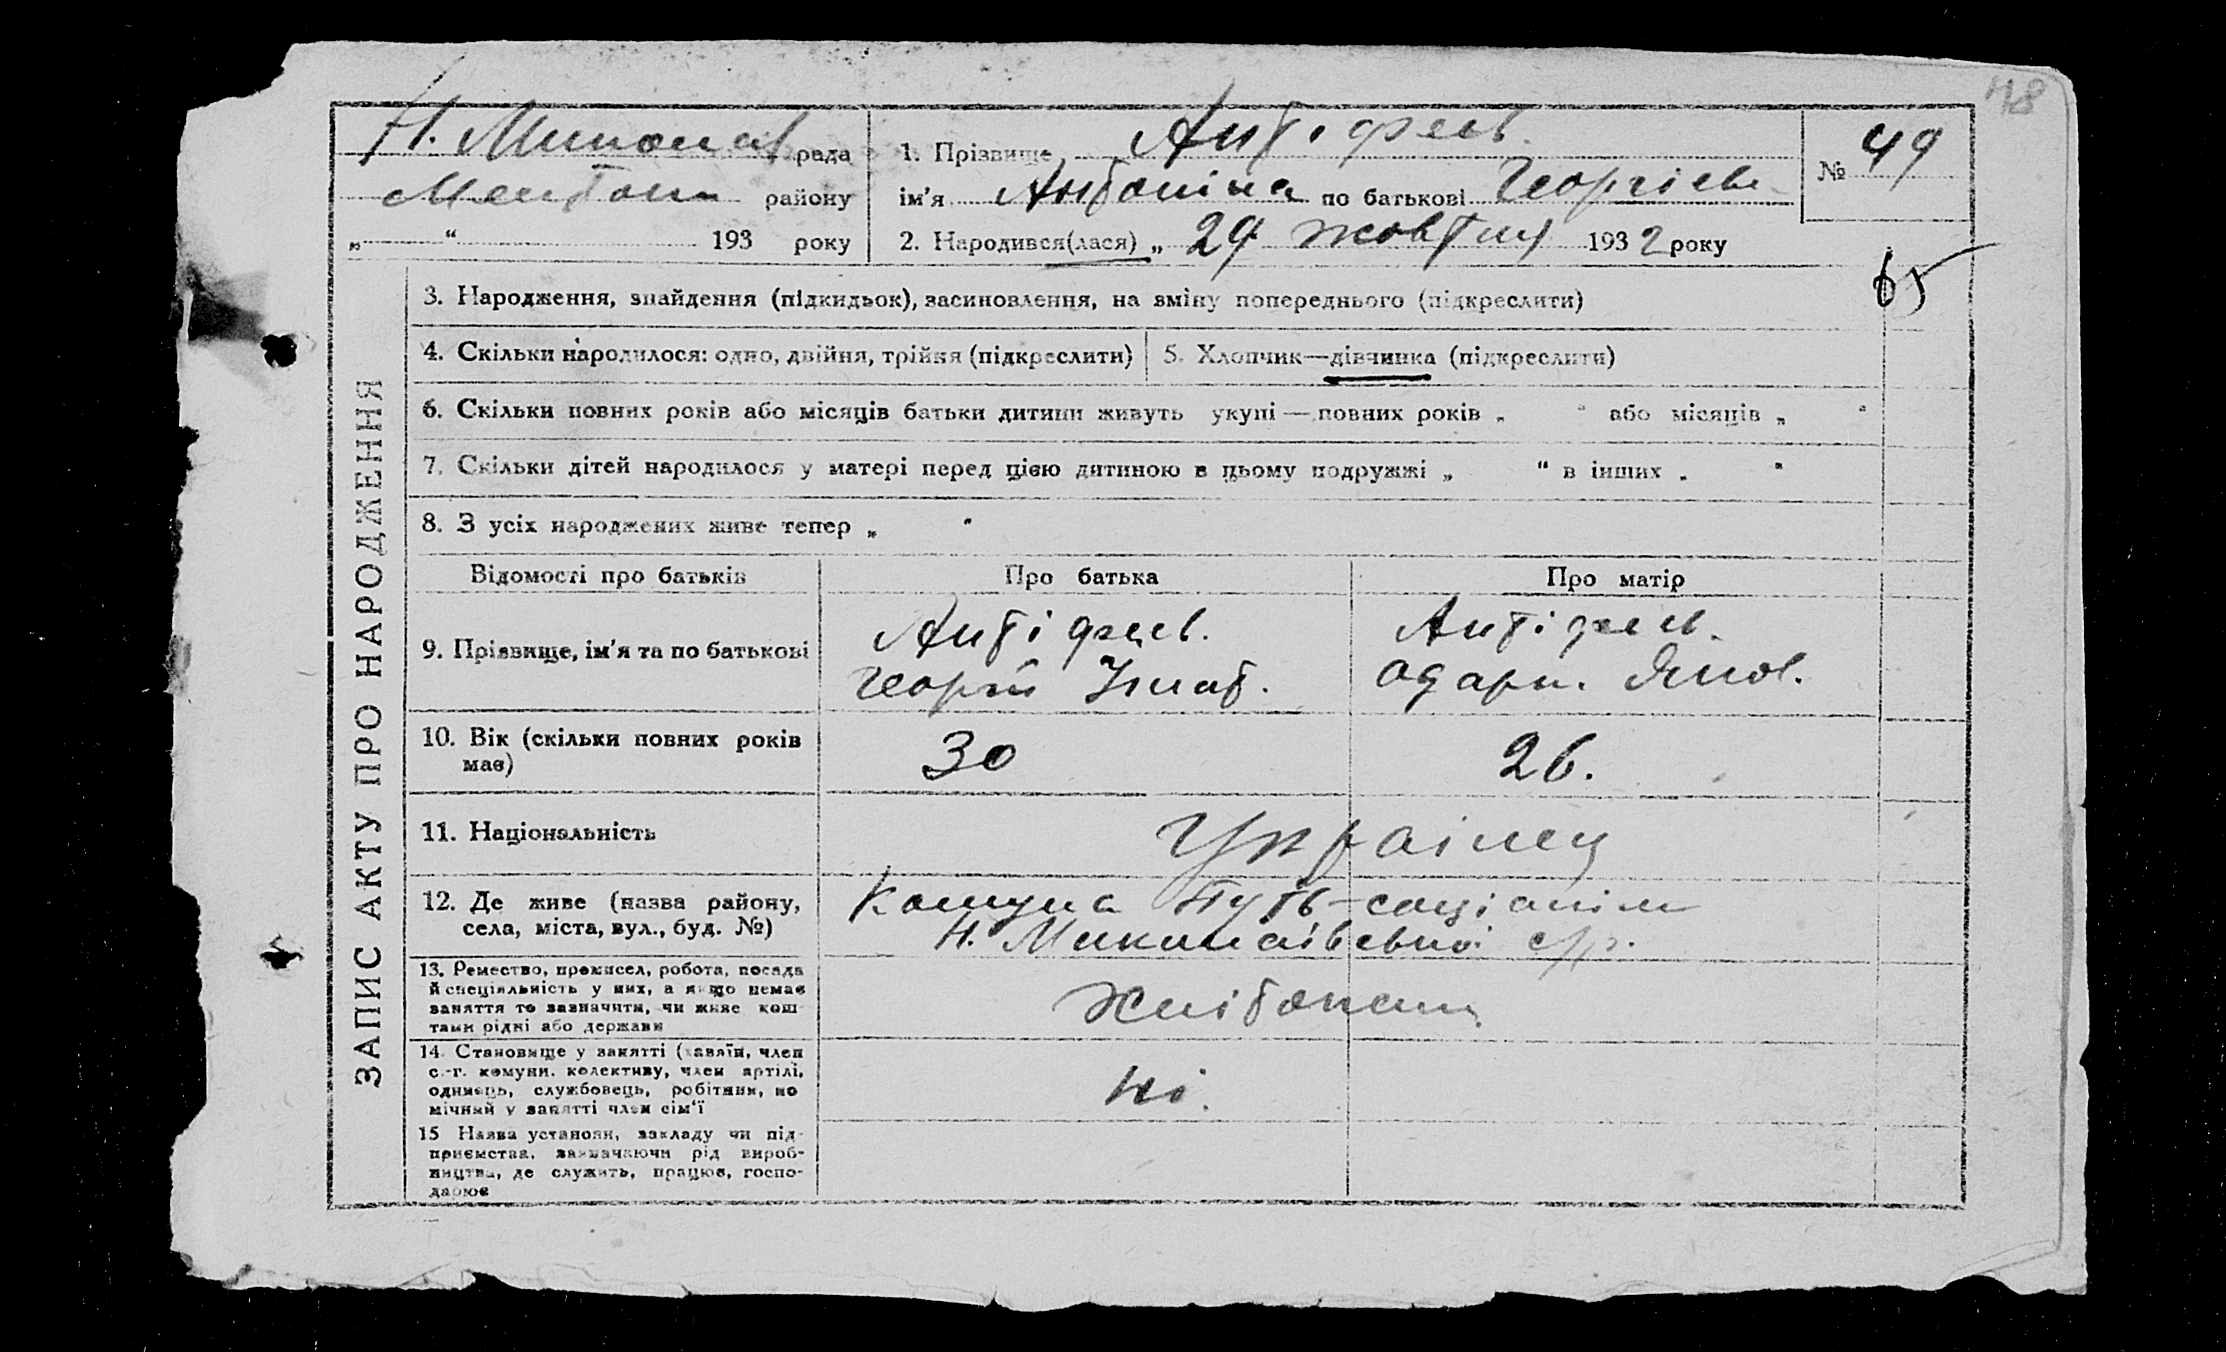 48
Н. Миколаїв рада
Мелітоп району
„ “ 193 року
1. Прізвище Антіфеєв.
ім'я Антоніна по батькові Георгієв
2. Народився(лася) „ 29 жовтня 1932 року
№ 49
65
ЗАПИС АКТУ ПРО НАРОДЖЕННЯ
3. Народження, знайдення (підкидьок), засиновлення, на зміну попереднього (підкреслити)
4. Скільки народилося: одно, двійня, трійня (підкреслити)
5. Хлопчик—дівчинка (підкреслити)
6. Скільки повних років або місяців батьки дитини живуть укупі — повних років „ “ або місяців „ “
7. Скільки дітей народилося у матері перед цією дитиною в цьому подружжі „ “ в інших „ “
8. З усіх народжених живе тепер „ “
Відомості про батьків
Про батька
Про матір
9. Прізвище, ім'я та по батькові
Антіфеєв.
Георгій Ігнат.
Антіфеєв.
Одарк. Яков.
10. Вік (скільки повних років
має)
30
26.
11. Національність
Українц
12. Де живе (назва району,
села, міста, вул., буд. №)
Комуна Путь-соціалізм
Н. Миколаівської с/р.
13. Ремество, промисел, робота, посада
й спеціяльність у них, а якщо немає
заняття то зазначити, чи живе кош-
тами рідні або держави
Хлібопаш.
14. Становище у занятті (хазяїн, член
с.-г. комуни, колективу, член артілі,
одинець, службовець, робітник, по
мічний у занятті член сім'ї
ні.
15 Назва установи, закладу чи під-
приємства, зазначаючи рід вироб-
ництва, де служить, працює, госпо-
дарює